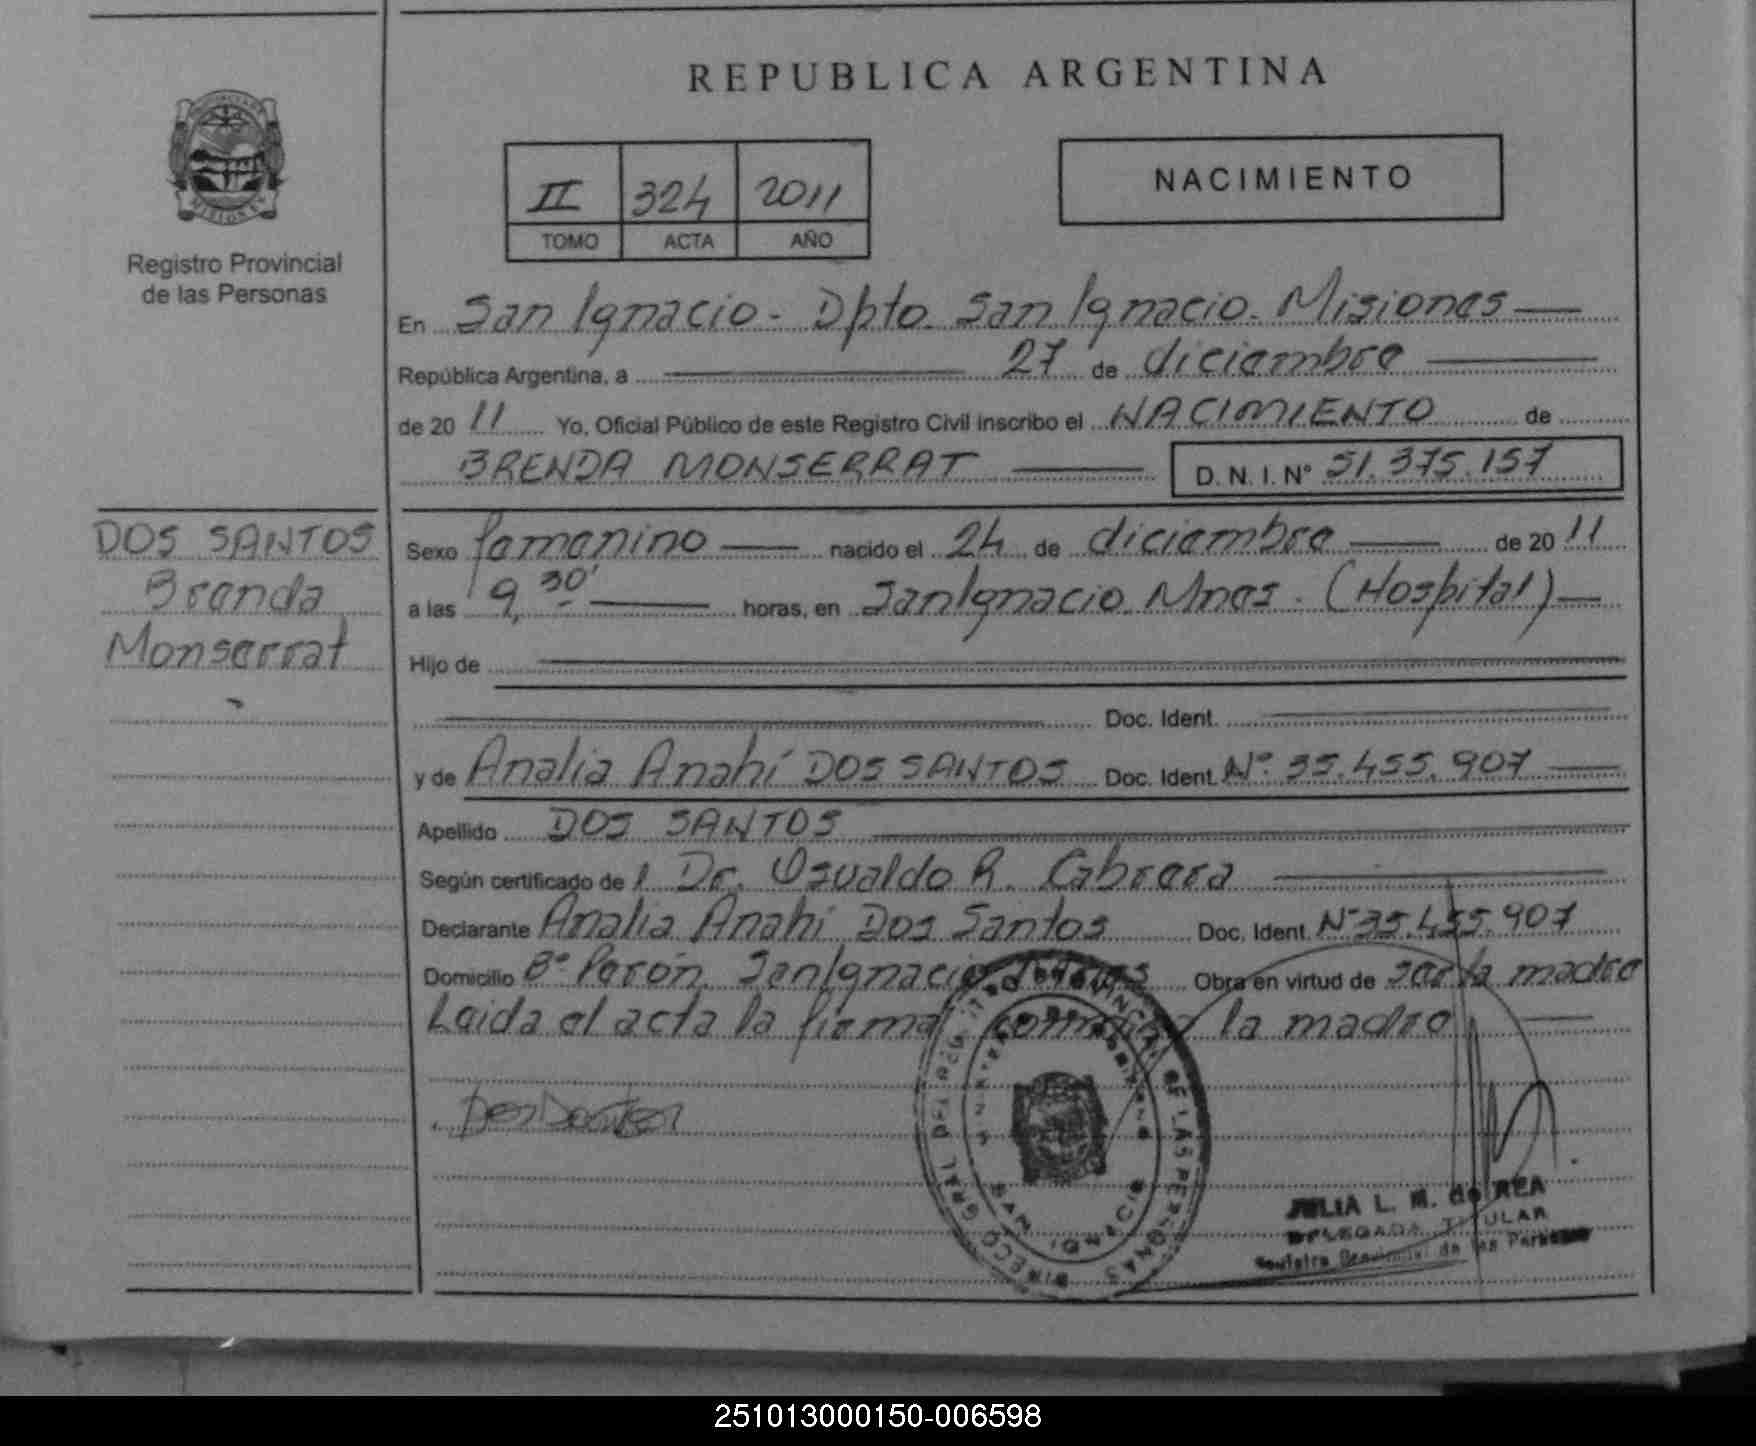 REPUBLICA ARGENTINA
MISIONES
Registro Provincial
de las Personas
II 324 2011
TOMO ACTA AÑO
NACIMIENTO
En San Ignacio - Dpto. San Ignacio. Misiones
República Argentina, a 27 de diciembre
de 2011 Yo, Oficial Público de este Registro Civil inscribo el NACIMIENTO de
BRENDA MONSERRAT D. N. I. Nº 51.375.157
DOS SANTOS
Brenda
Monserrat
Sexo femenino nacido el 24 de diciembre de 2011
a las 9,30' horas, en San Ignacio Mnes. (Hospital)
Hijo de
Doc. Ident.
y de Analia Anahí DOS SANTOS Doc. Ident. Nº 35.455.907
Apellido DOS SANTOS
Según certificado de l Dr. Osvaldo R. Cabrera
Declarante Analia Anahi Dos Santos Doc. Ident. Nº 35.455.907
Domicilio Bº Perón. San Ignacio Mnes Obra en virtud de ser la madre
Leida el acta la firma conmigo la madre
JULIA L. M. de REA
DELEGADA TITULAR
Registro Provincial de las Personas
251013000150-006598